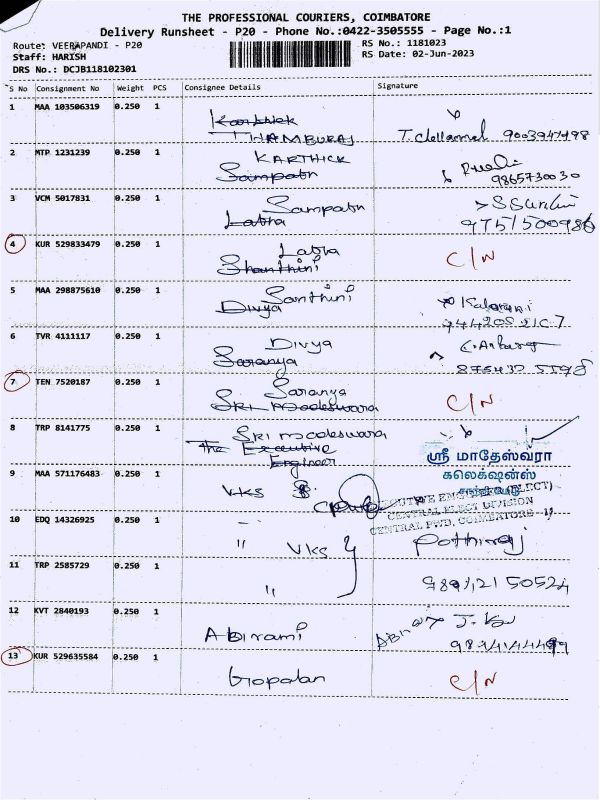 THE PROFESSIONAL COURIERS, COIMBATORE
Delivery Runsheet - P20 - Phone No.:0422-3505555 - Page No.:1
Route: VEERAPANDI - P20
RS No.: 1181023
Staff: HARISH
RS Date: 02-Jun-2023
DRS No.: DCJB118102301
S No Consignment No Weight PCS Consignee Details Signature
1 MAA 103506319 0.250 1
Karthick
THAMBURAJ T. Chellammal 9003947498
2 MTP 1231239 0.250 1
KARTHICK
Sampath 9865730030
3 VCM 5017831 0.250 1
Sampath
Labha 9751500986
4 KUR 529833479 0.250 1
Labha C/N
Shanthini
5 MAA 298875610 0.250 1
Santhini
Divya
6 TVR 4111117 0.250 1
Divya
Saranya
7 TEN 7520187 0.250 1
Saranya C/N
SRI Madeswara
8 TRP 8141775 0.250 1
SRI Madeswara
The Executive
Engineer
ஸ்ரீ மாதேஸ்வரா
கலெக்ஷன்ஸ்
9 MAA 571176483 0.250 1
VKS
EXECUTIVE ENGINEER (ELECT)
CENTRAL ELECT DIVISION
CENTRAL PWD, COIMBATORE
10 EDQ 14326925 0.250 1
" VKS Pothiraj
11 TRP 2585729 0.250 1
"
12 KVT 2840193 0.250 1
Abirami
13 KUR 529635584 0.250 1
Gopalan C/N